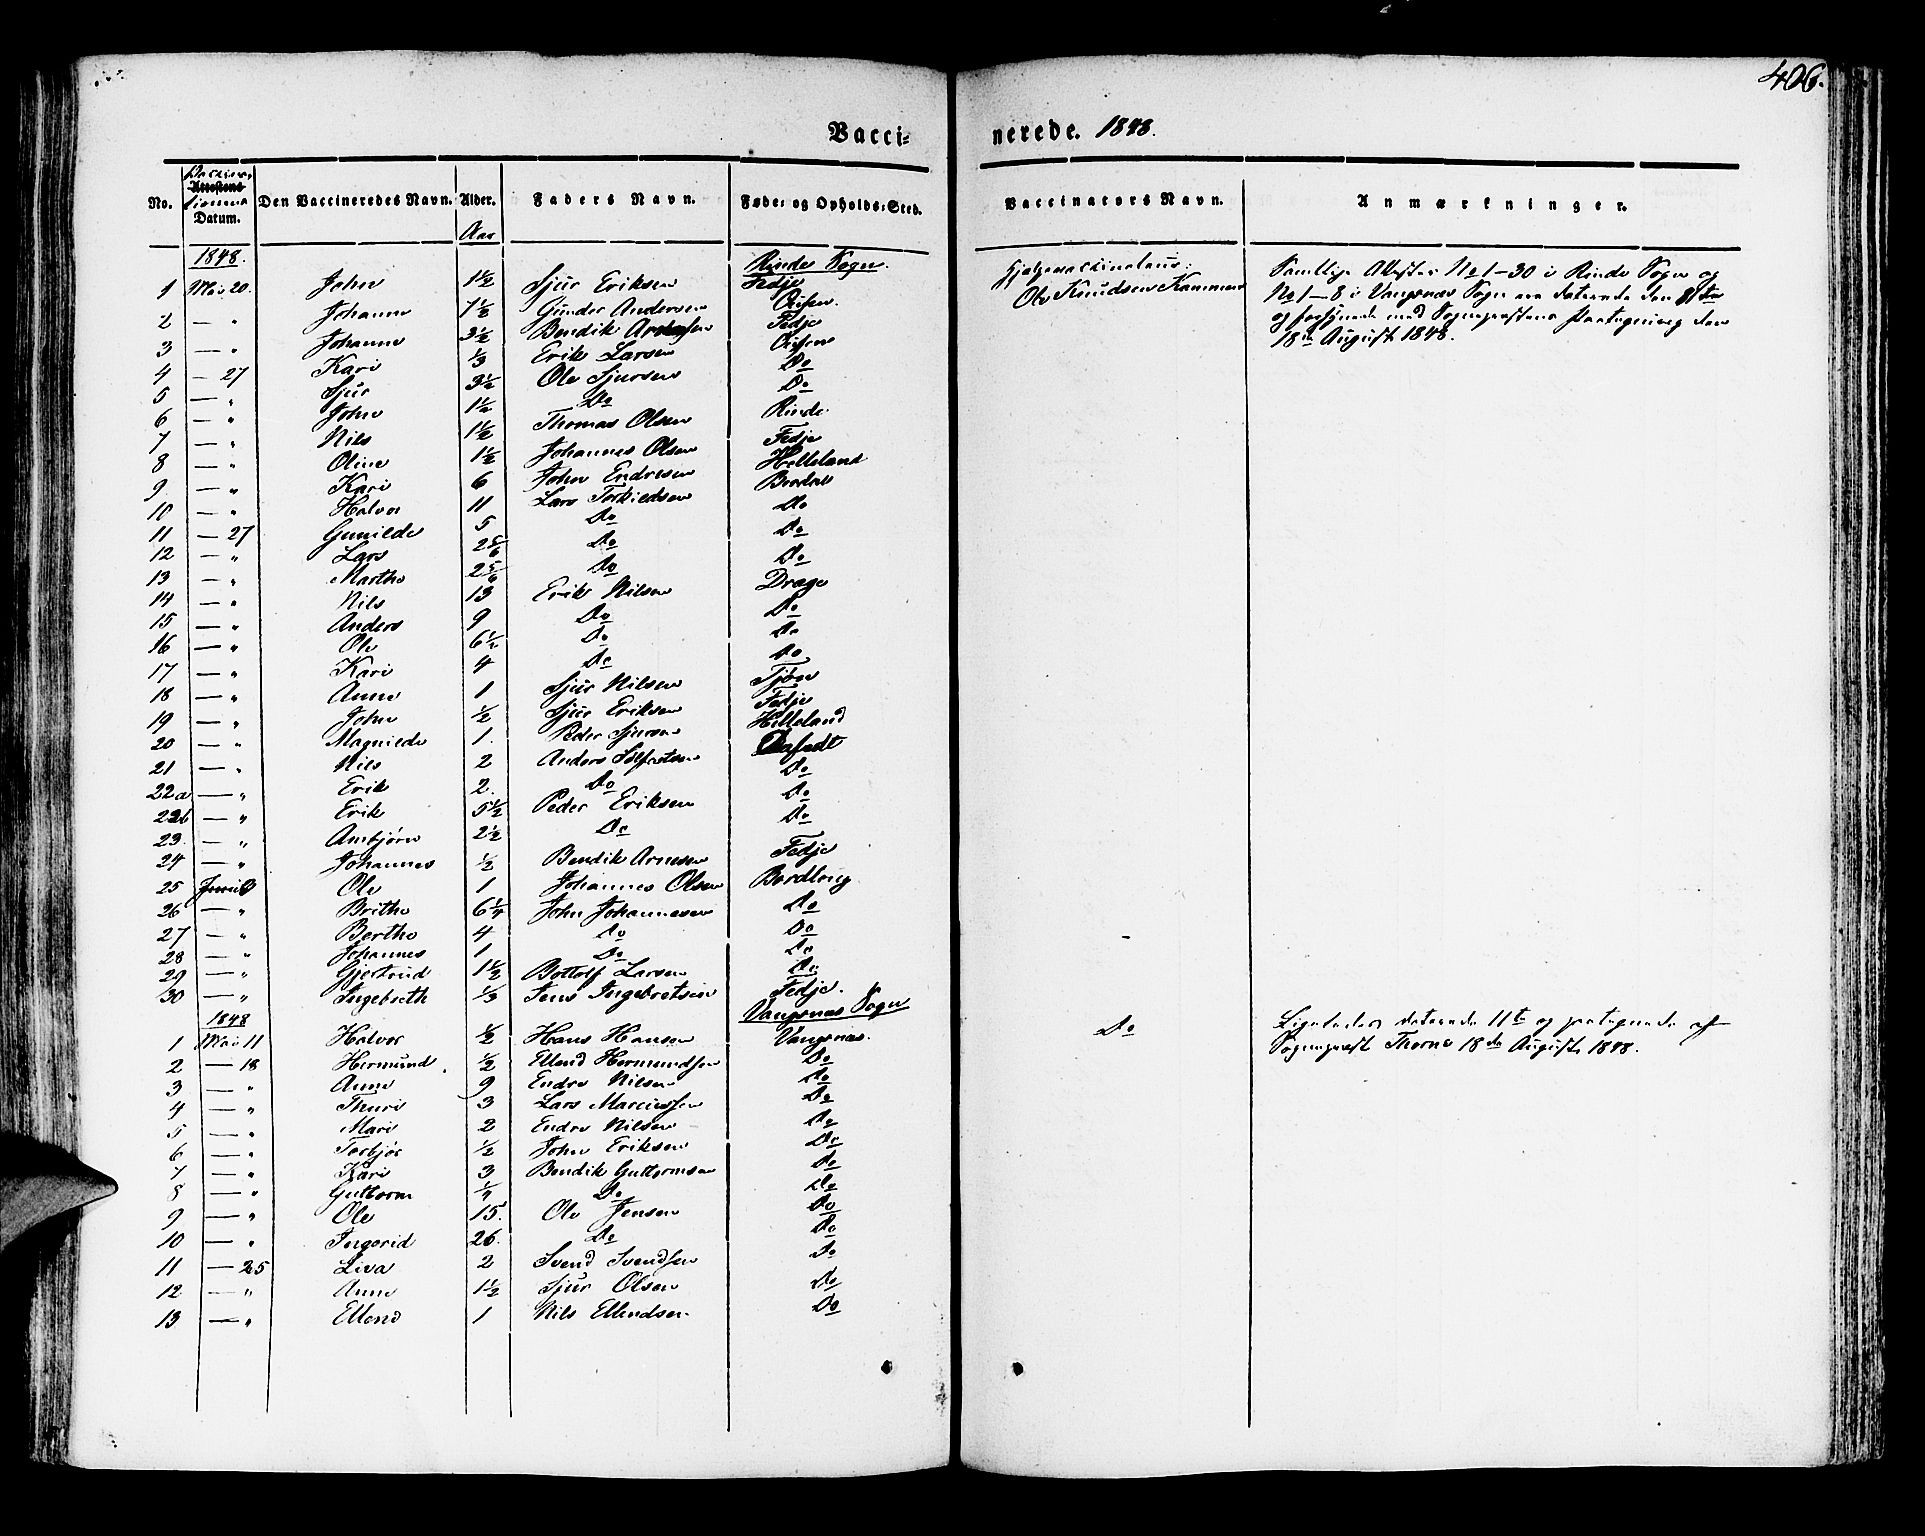 406.
Vacci- nerede. 1848.
No. Vaccina- Attestens tionens Datum. Den Vaccineredes Navn. Alder. Aar Faders Navn. Føde- og Opholds-Sted. Vaccinators Navn. Anmærkninger.
1848. Rinde Sogn.
1 Mai 20. John 1½ Sjur Eriksen Fedje
2 — " Johanne 7½ Gunder Andersen
3 — " Johanne 3½ Bendik Arnesen Fedje
4 — 27 Kari ⅓ Erik Larsen
5 — " Sjur 3½ Ole Sjursen Do
6 — " John 1½ Do Do
7 — " Nils 1½ Thomas Olsen Rinde
8 — " Oline 1½ Johannes Olsen Fedje
9 — " Kari 6 John Endresen Helleland
10 — " Halvor 11 Lars Torkildsen
11 — 27 Gunilde 5 Do Do
12 — " Lars 2 5/6 Do Do
13 — " Martha 2 5/6 Do Do
14 — " Nils 13 Erik Nilsen Drage
15 — " Anders 9 Do Do
16 — " Ole 6½ Do Do
17 — " Kari 4 Do Do
18 — " Anne 1 Sjur Nilsen Tjørn
19 — " John ½ Sjur Eriksen Fedje
20 — " Magnilde 1. Peder Sjursen Helleland
21 — " Nils 2 Anders
22a — " Erik 2. Do Do
22b — " Erik 5½ Peder Eriksen Do
23. — " Ambjørn 2½ Do Do
24 — " Johannes ½ Bendik Arnesen Fedje
25 Juni Ole 1 Johannes Olsen Bordlong
26 — " Brithe 6¼ John Johannesen Do
27 — " Berthe 4 Do Do
28 — " Johannes 1 Do Do
29 — " Gjertrud 1½ Bottolf Larsen Do
30 — " Ingebreth ⅓ Jens Ingebretsen Fedje.
1848 Vangsnæs Sogn
1 Mai 11 Halvor ½ Hans Hansen Vangsnæs.
2 — 18 Hermund ½ Ellend Hermundsen Do
3 — " Anne 9 Endre Nilsen Do
4 — " Thuri 3 Lars Do
5 — " Mari 2 Endre Nilsen Do
6 — " Torbjør ½ John Eriksen Do
7 — " Kari 3 Bendik Guttormsen Do
8 — " Guttorm Do Do
9 — " Ole 15. Ole Jensen Do
10 — " Ingerid 26. Do Do
11 — 25 Liva 2 Svend Svendsen Do
12 — " Anne 1½ Sjur Olsen Do
13 — " Ellend 1 Nils Ellendsen Do
Hjelpevaccinateur:
Ole Knudsen Hammer
Samtlige Attester No 1-30 i Rinde Sogn og
No 1-8 i Vangsnæs Sogn ere daterede den 8de
og forsynede med Sogneprestens Paategning den
18de August 1848.
Do
Ligeledes daterede 11te og paategnede af
Sogneprest Thorne 18de August 1848.